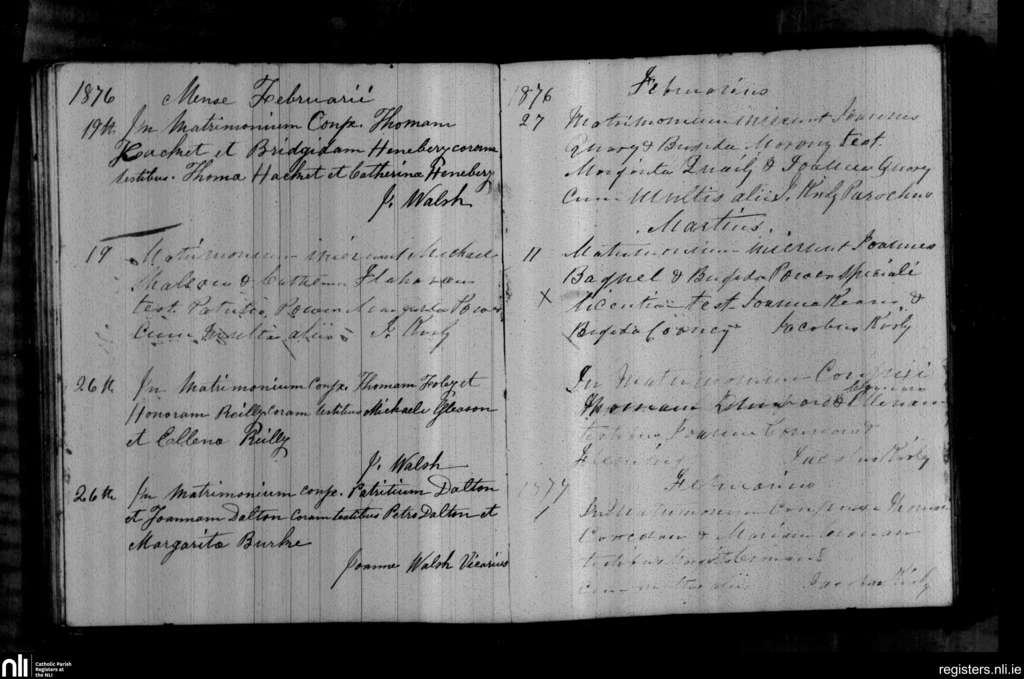 1876 Mense Februarii
19th In Matrimonium Conjx. Thomam
Hacket et Bridgidam Henebery coram
testibus. Thoma Hacket et Catherina Henebery
J. Walsh
19 Matrimonium inierunt Michael
& Catherin
test. Patritio Power Margarita Power
cum multis aliis J. Kirly
26th In Matrimonium Conjx. Thomam Foley et
Honoram Reilly Coram testibus Michaele Gleason
et Ellena Reilly
J. Walsh
26th In Matrimonium conjx. Patritium Dalton
et Joannam Dalton Coram testibus Petro Dalton et
Margarita Burke
Joanne Walsh Vicarius
1876 Februarius
27 Matrimonium inierunt Joannes
Quary & Brigida Morony test.
Quaily & Joannes Quary
cum multis aliis J. Kirly Parochus
Martius.
11 Matrimonium inierunt Joannes
Bagnel & Brigida Power speciali
X licentia test. Joanna &
Brigida Cooney Jacobus Kirly
In Matrimonium Conjunxi
Thomam &
testibus Joanne &
Jacobus Kirly
1877 Februarius
In Matrimonium Conjunxi Thomam
& Mariam
testibus
cum multis aliis Jacobus Kirly
nli Catholic Parish
Registers at
the NLI
registers.nli.ie